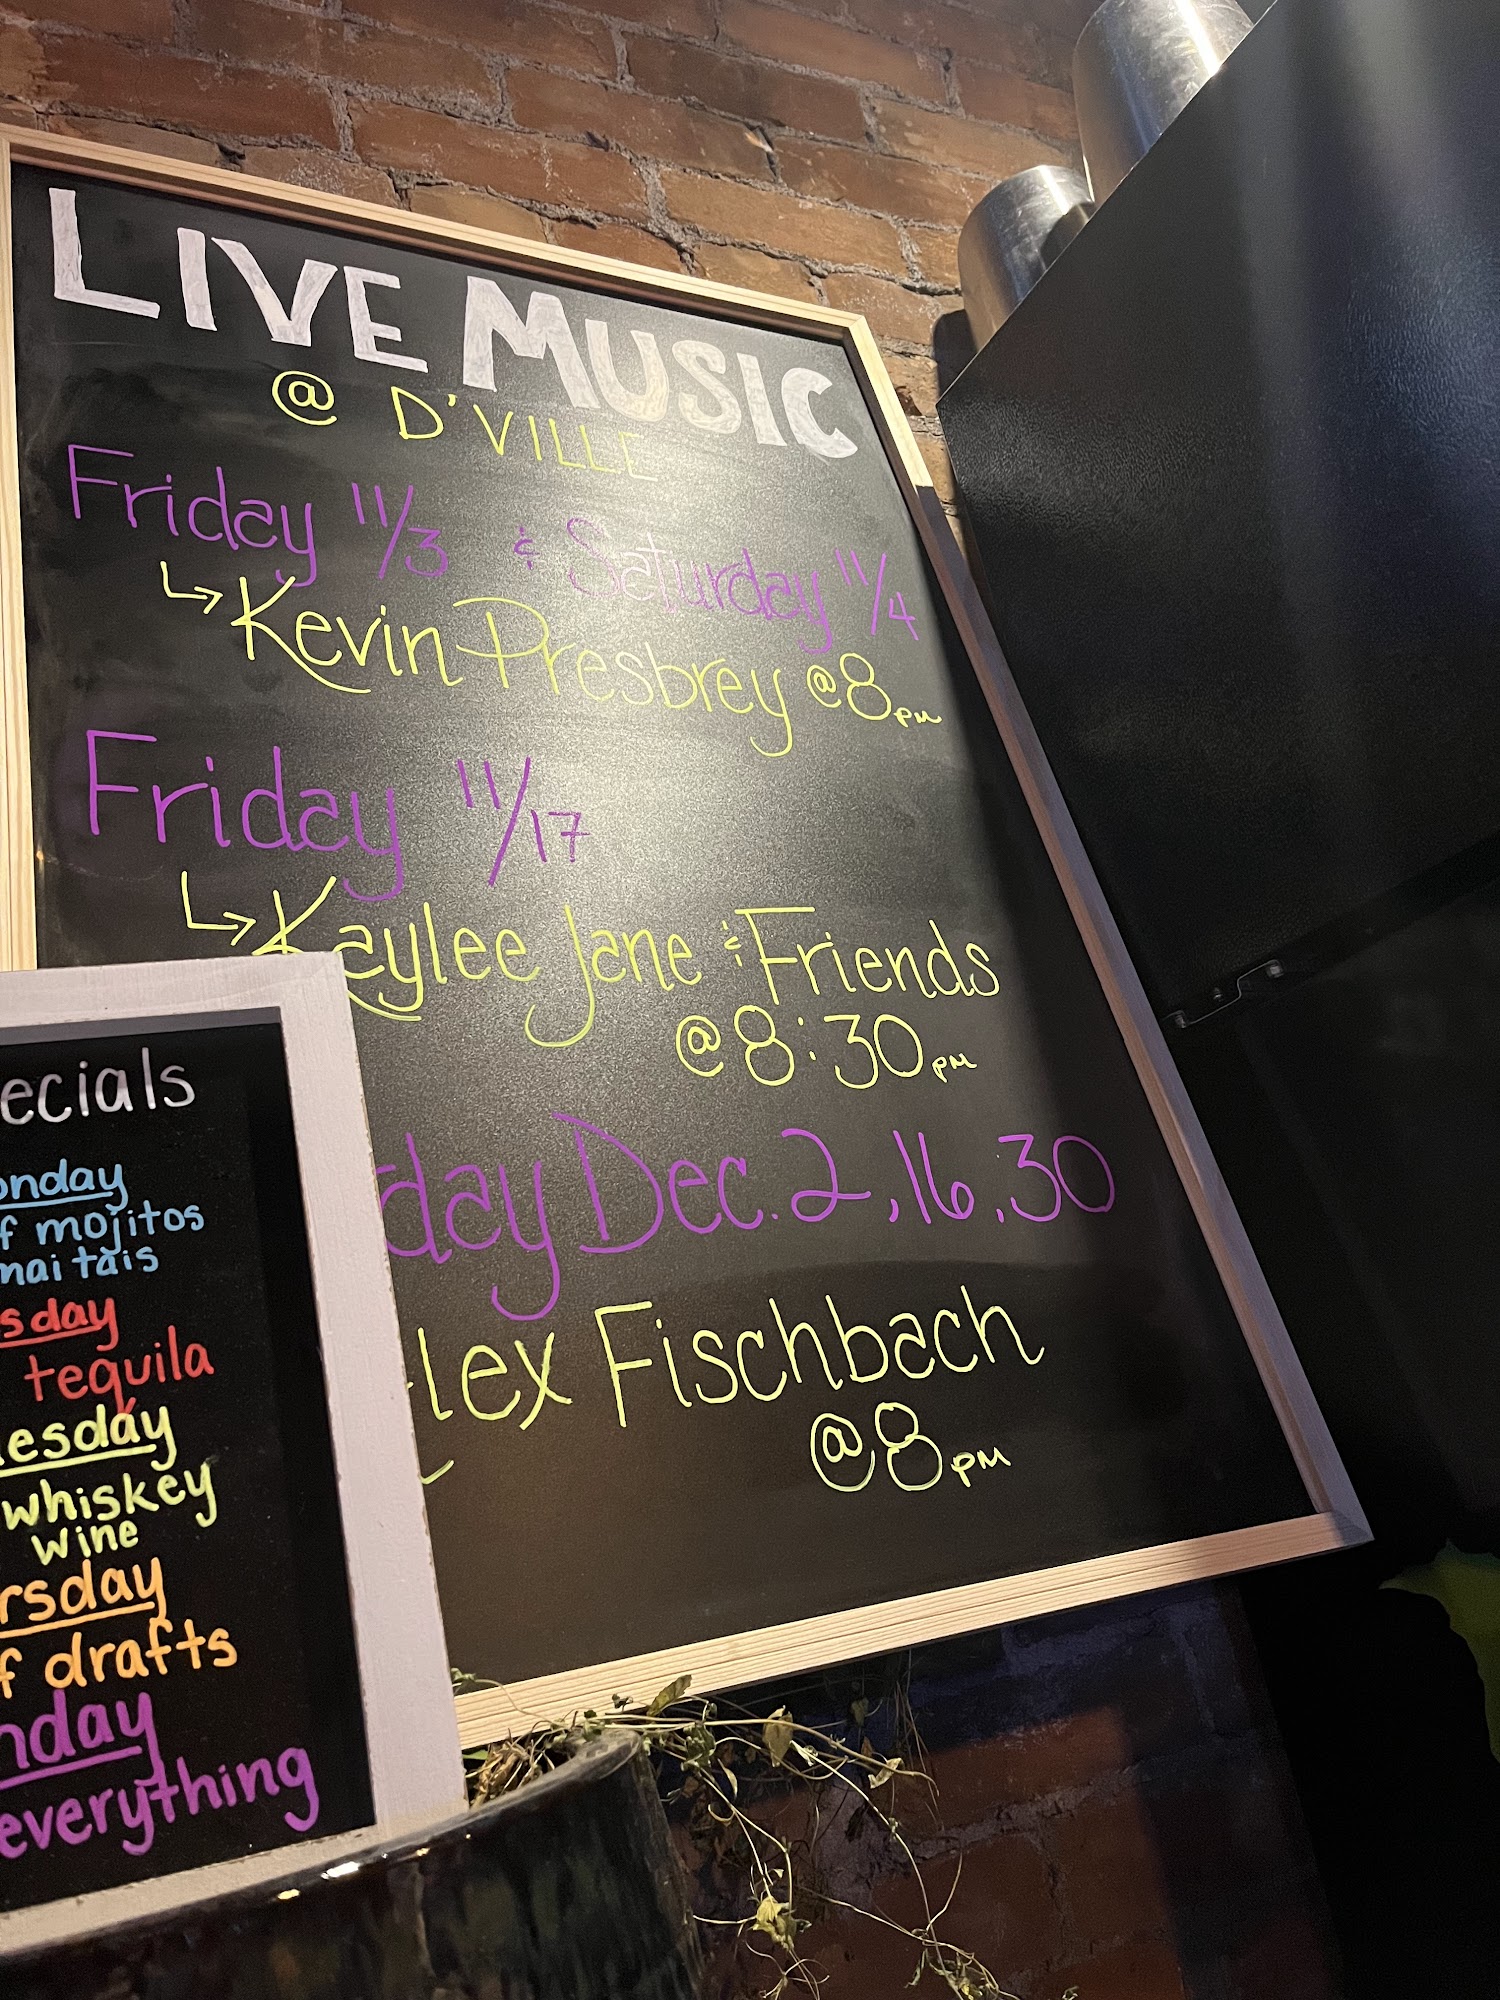 LIVE MUSIC
@ D'VILLE
Friday 11/3 & Saturday 11/4
↳ Kevin Presbrey @ 8pm
Friday 11/17
↳ Kaylee Jane & Friends
@ 8:30pm
day Dec. 2, 16, 30
lex Fischbach
@ 8pm
ecials
onday
f mojitos
mai tais
sday
tequila
esday
whiskey
wine
rsday
f drafts
nday
everything